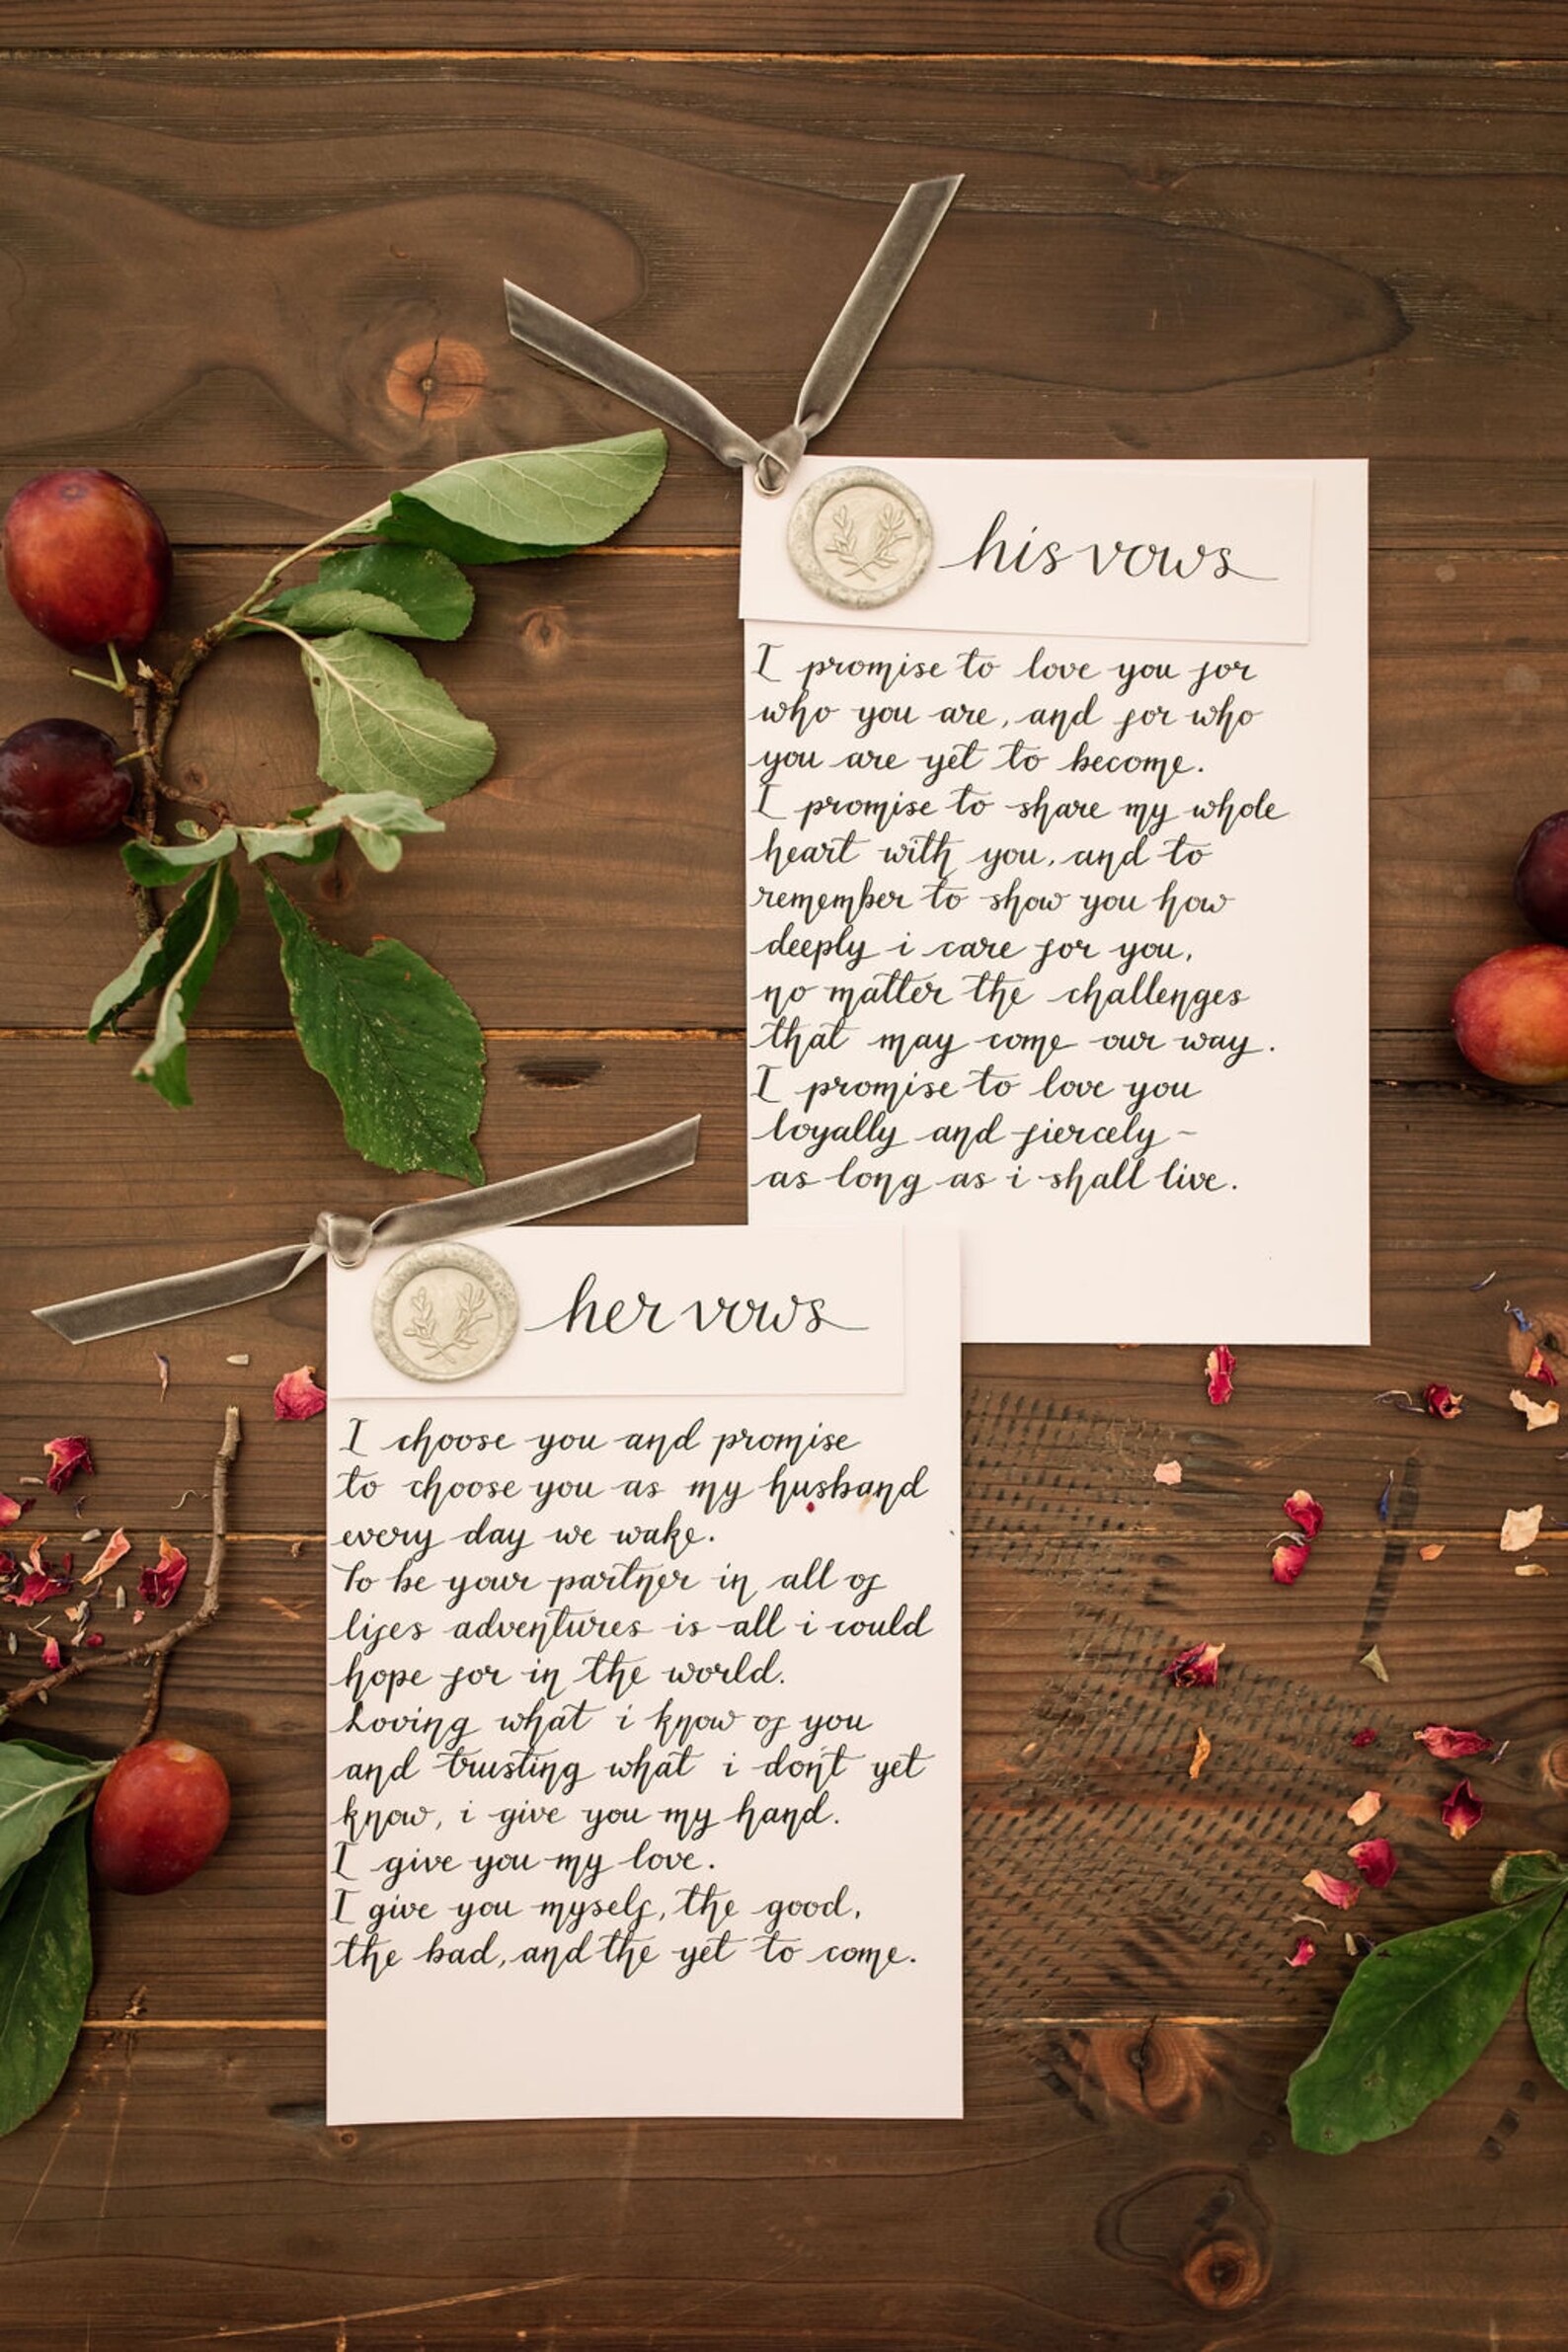 his vows
I promise to love you for
who you are, and for who
you are yet to become.
I promise to share my whole
heart with you, and to
remember to show you how
deeply i care for you,
no matter the challenges
that may come our way.
I promise to love you
loyally and fiercely -
as long as i shall live.
her vows
I choose you and promise
to choose you as my husband
every day we wake.
To be your partner in all of
lifes adventures is all i could
hope for in the world.
Loving what i know of you
and trusting what i don't yet
know, i give you my hand.
I give you my love.
I give you myself, the good,
the bad, and the yet to come.